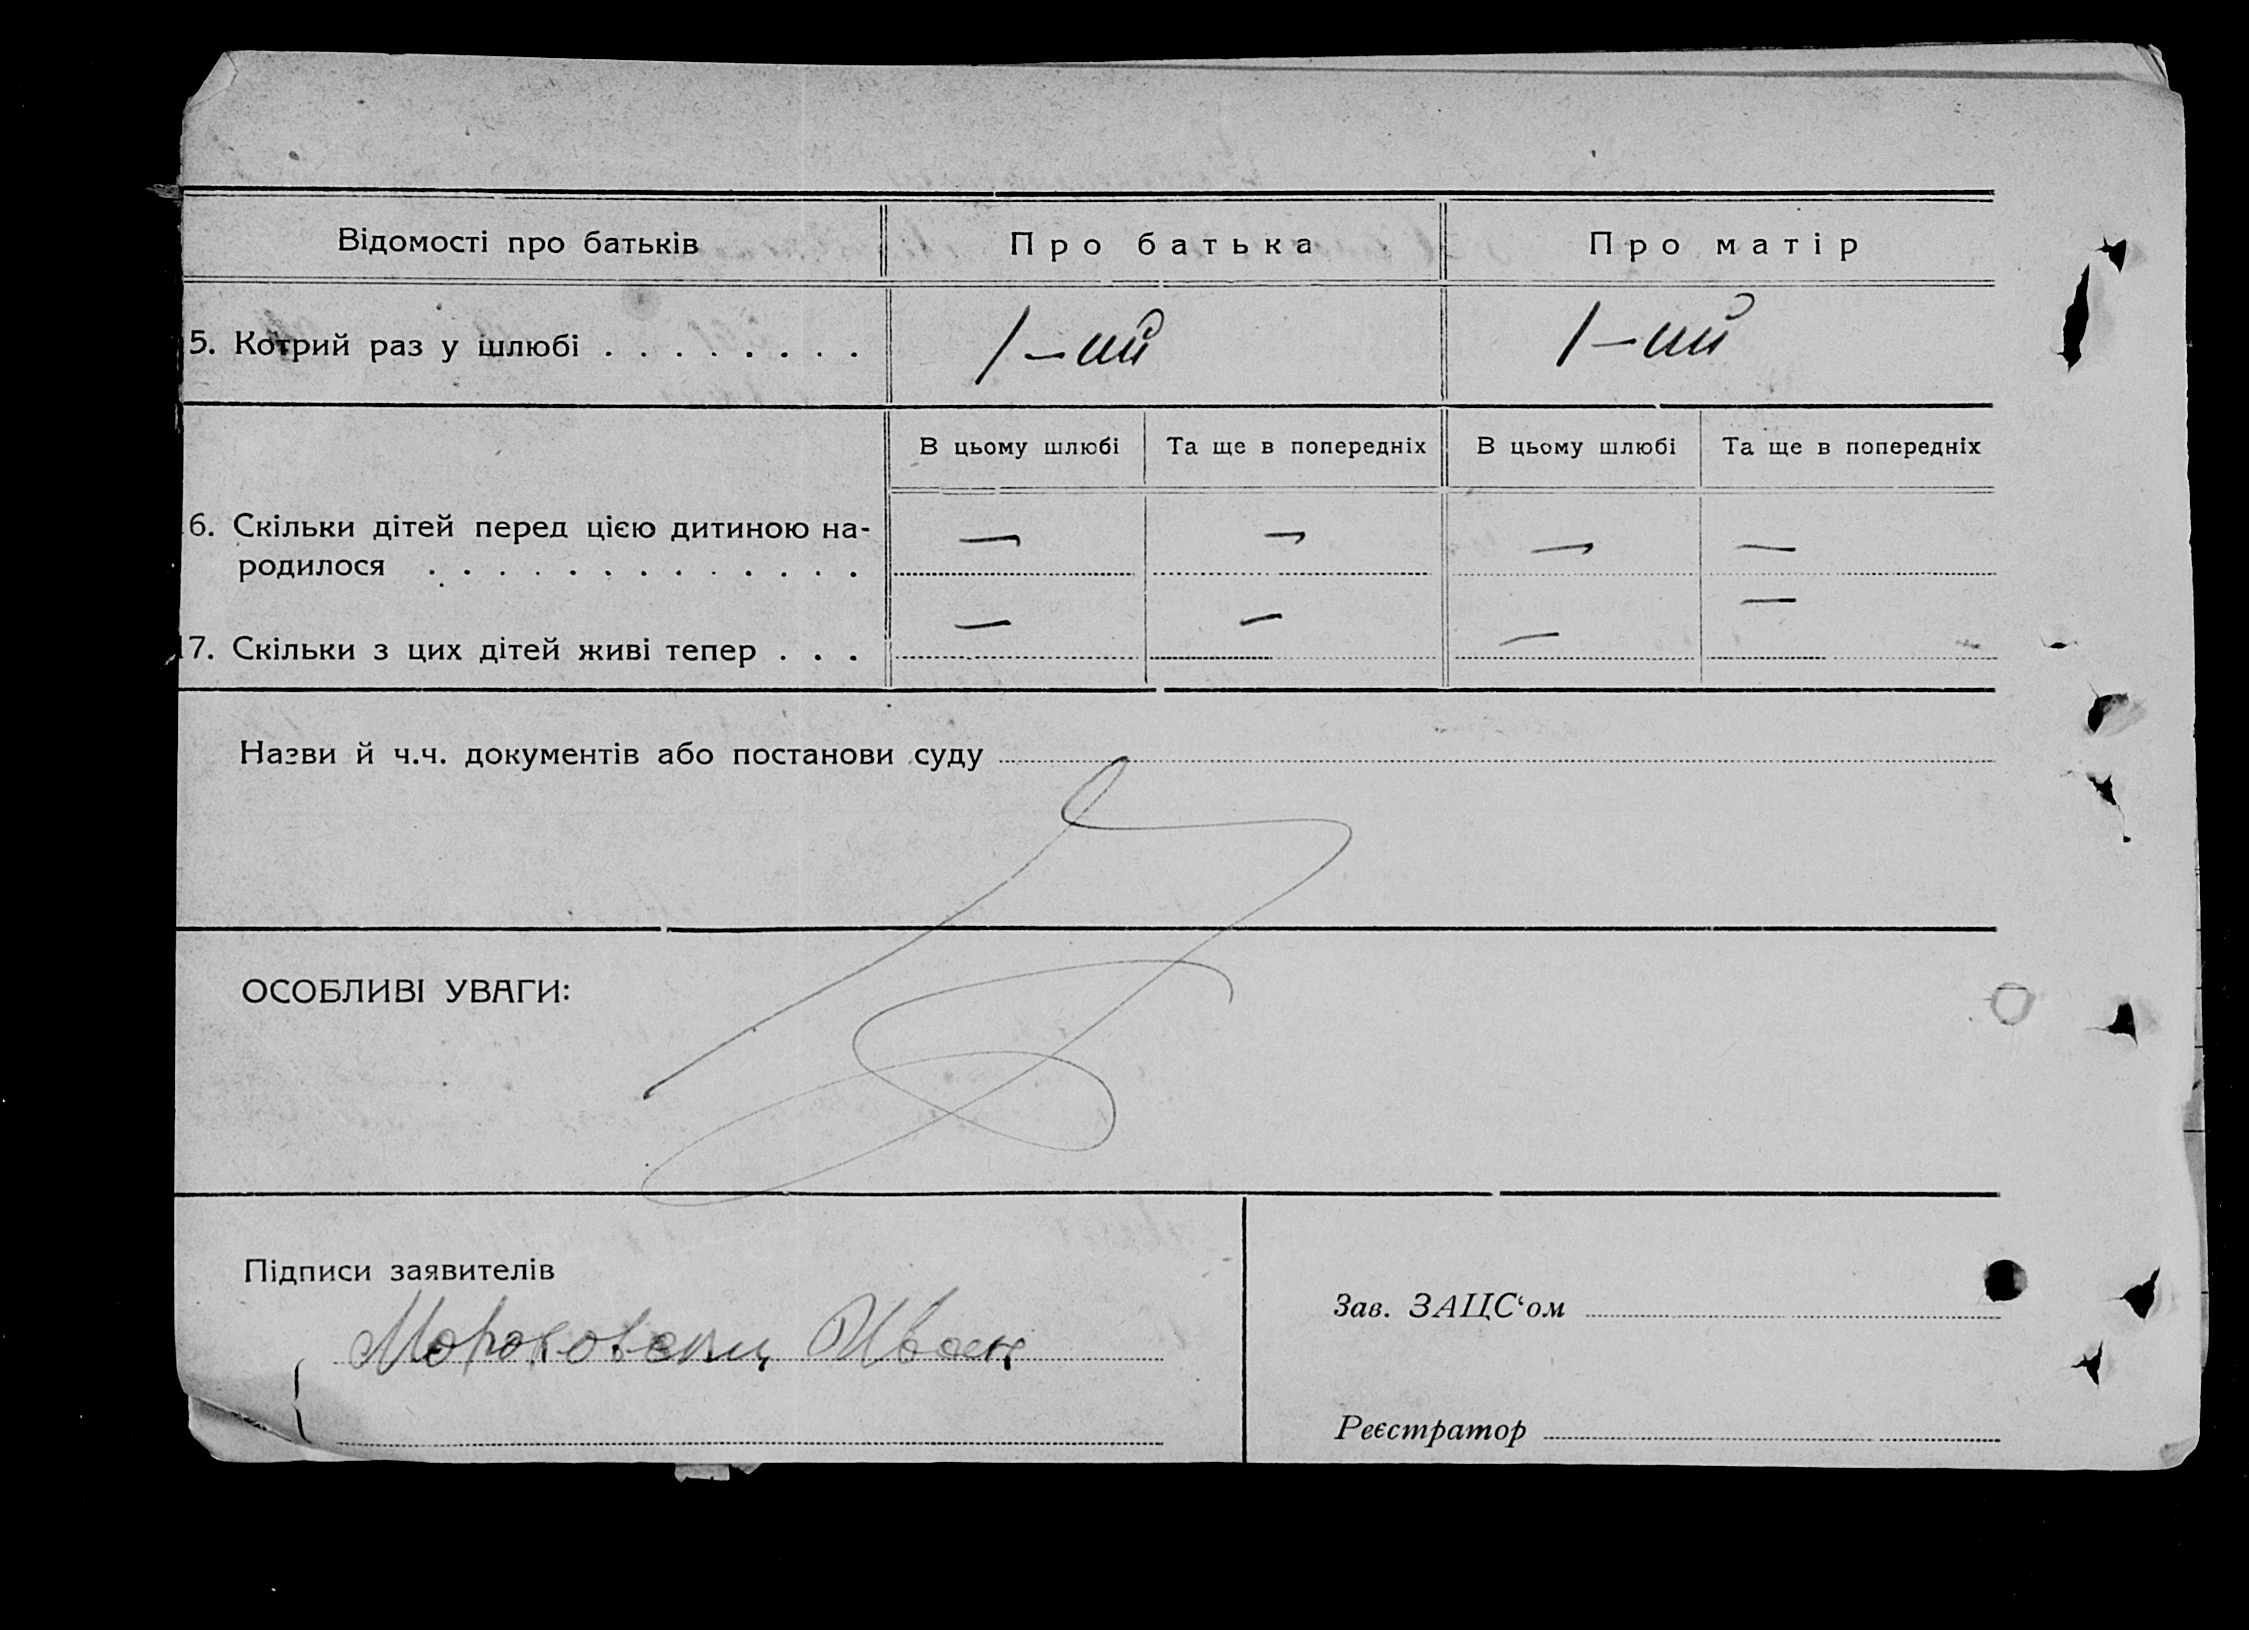 Відомості про батьків
Про батька
Про матір
5. Котрий раз у шлюбі . . . . . . . .
1–ий
1–ий
В цьому шлюбі
Та ще в попередніх
В цьому шлюбі
Та ще в попередніх
6. Скільки дітей перед цією дитиною на-
родилося . . . . . . . . . . . . .
— — — —
17. Скільки з цих дітей живі тепер . . .
— — — —
Назви й ч.ч. документів або постанови суду
ОСОБЛИВІ УВАГИ:
Підписи заявителів
Иван
Зав. ЗАЦС‘ом
Реєстратор